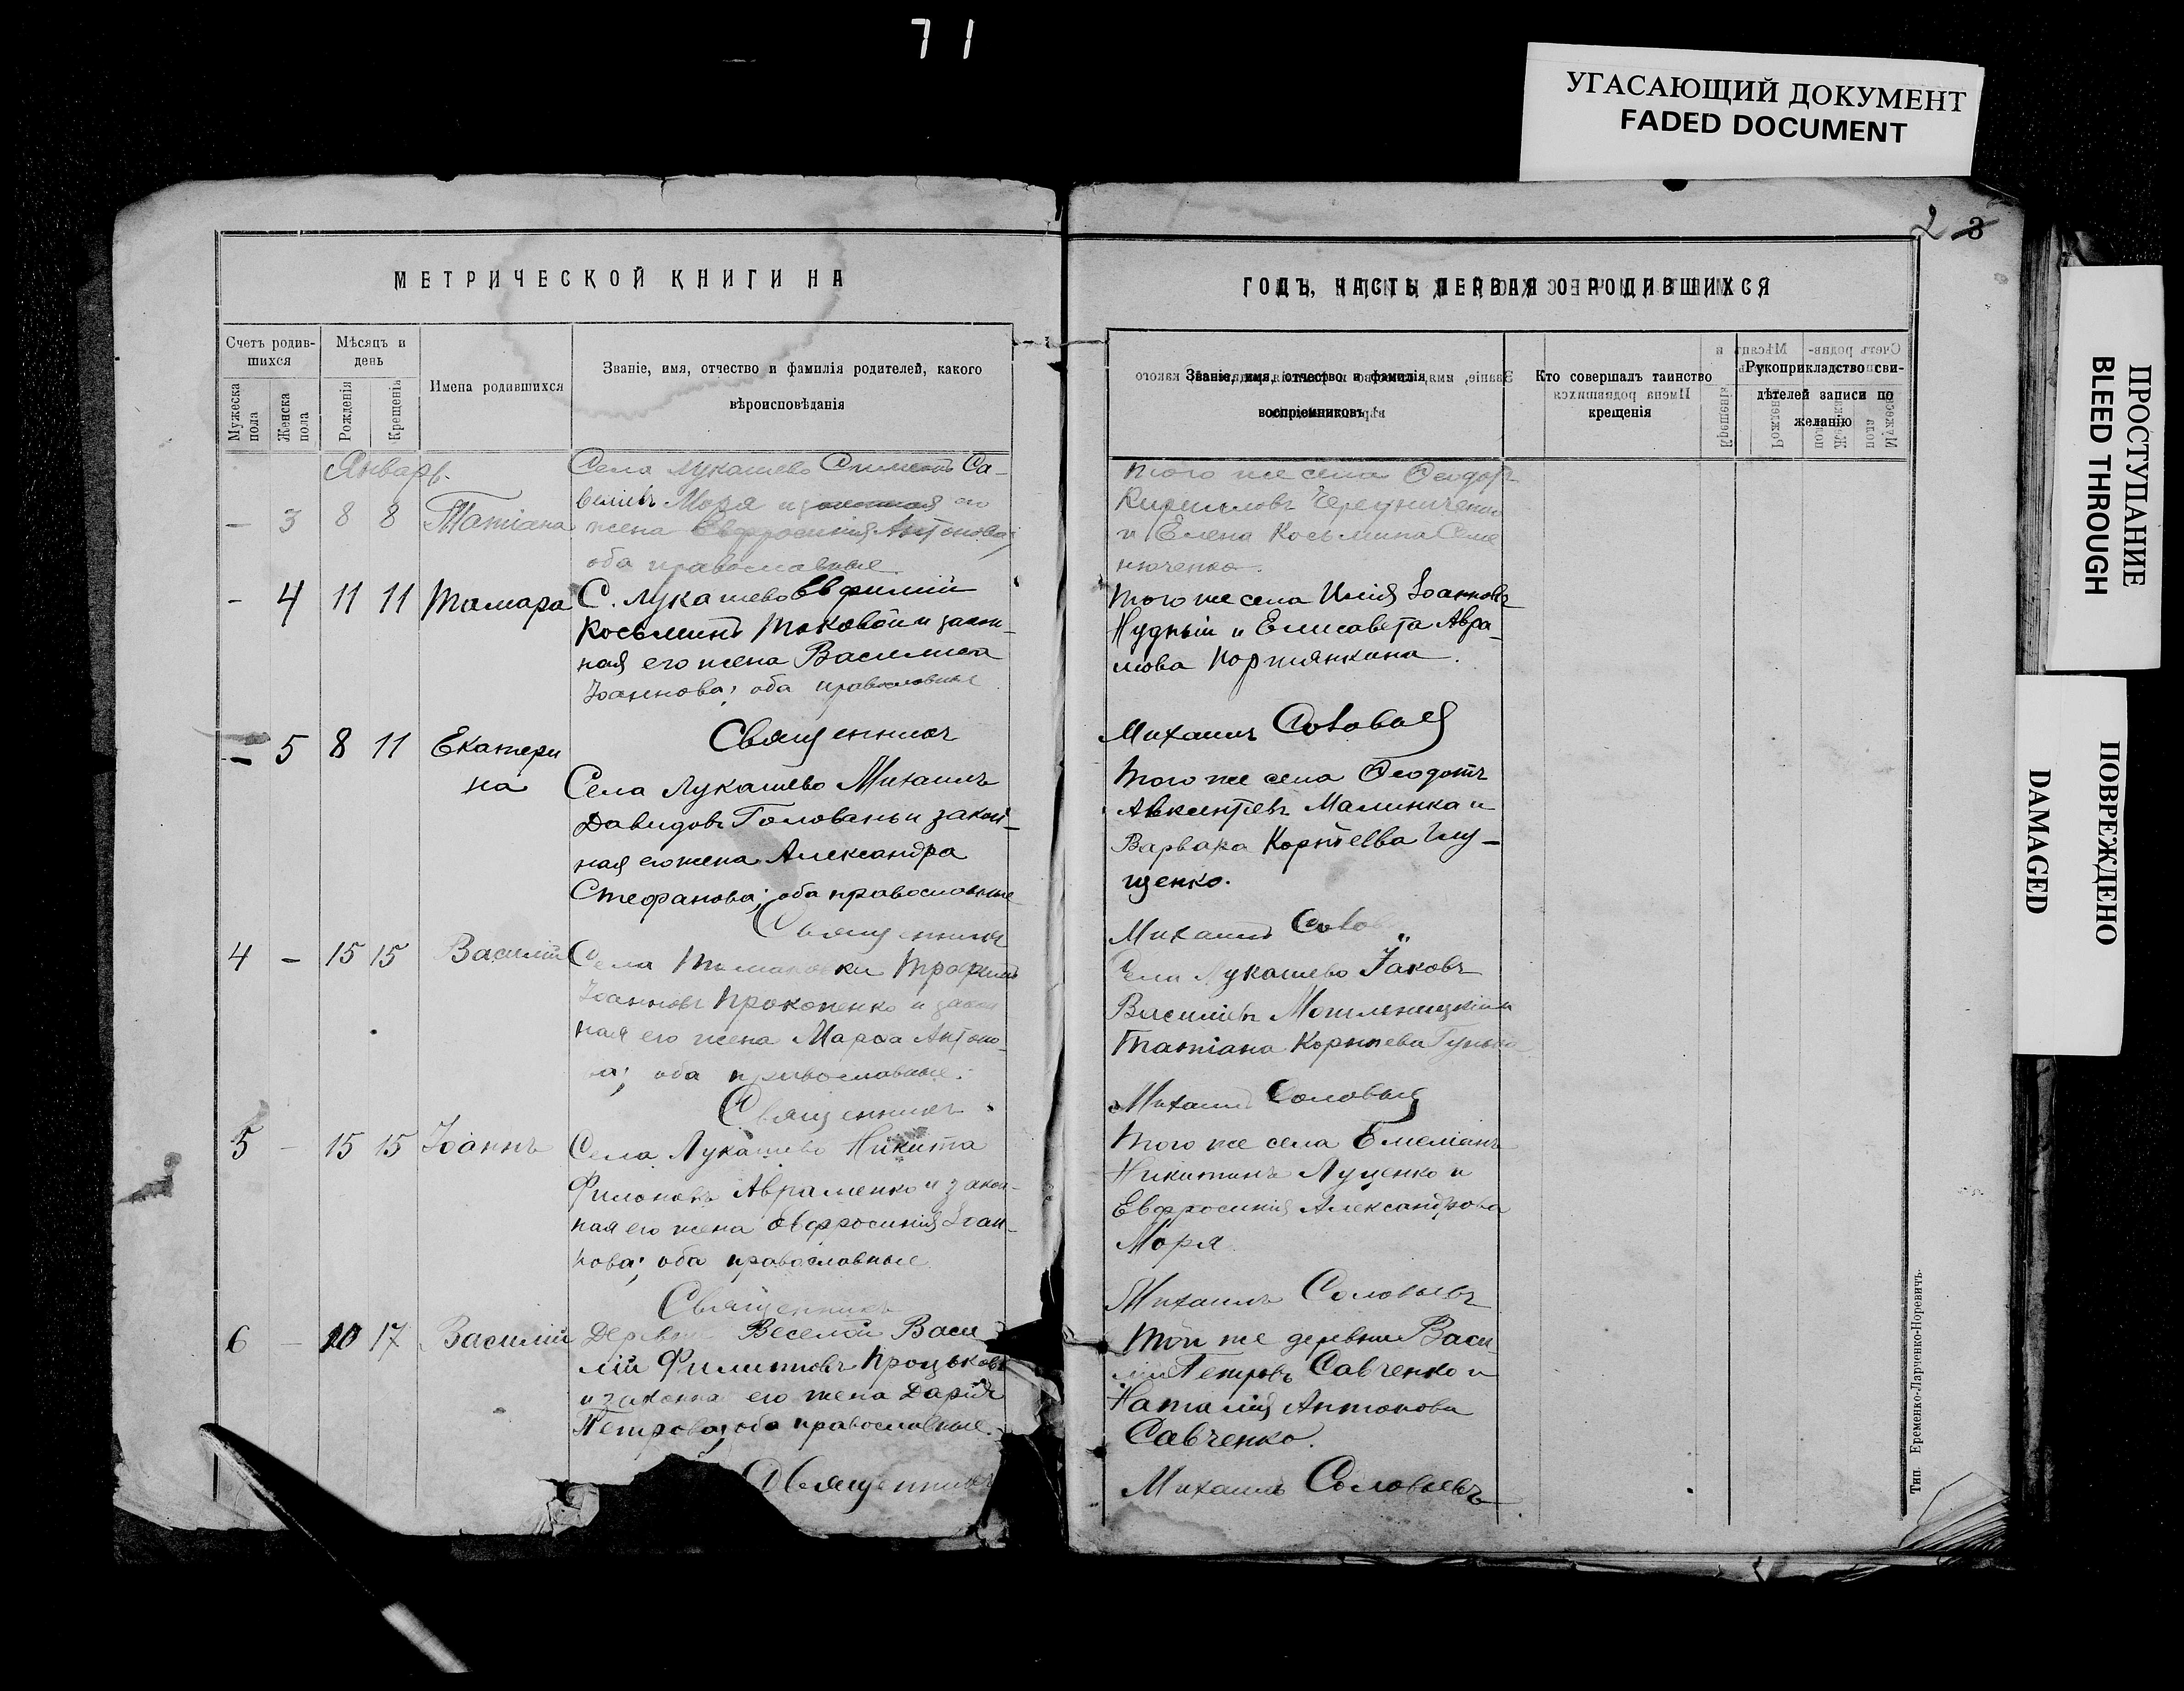 71
УГАСАЮЩИЙ ДОКУМЕНТ
FADED DOCUMENT
ПРОСТУПАНИЕ
BLEED THROUGH
ПОВРЕЖДЕНО
DAMAGED
2 3
МЕТРИЧЕСКОЙ КНИГИ НА
Счетъ родив-
шихся
Мѣсяцъ и
день
Мужеска
пола
Женска
пола
Рожденія
Крещенія
Имена родившихся
Званіе, имя, отчество и фамилія родителей, какого
вѣроисповѣданія
Январь.
Села Лукашево Са-
- 3 8 8 Татіана
веліевъ Моря его
жена Евфросинія Антонова;
оба православные.
- 4 11 11 Тамара С. Лукашево Евфимій
Косьминъ и закон-
ная его жена Василиса
Іоаннова; оба православные
Священникъ
- 5 8 11 Екатери
на
Села Лукашево Михаилъ
Давидовъ Головань и закон-
ная его жена Александра
Стефанова; оба православные
Священникъ
4 - 15 15 Василій Села Трофимъ
Іоанновъ Прокопенко и закон
ная его жена Марфа Антоно-
ва; оба православные.
Священникъ
5 - 15 15 Іоаннъ Села Лукашево Никита
Филоновъ Авраменко и закон-
ная его жена Евфросинія Іоан-
нова; оба православные
Священникъ
6 - 10 17 Василій Деревни Веселой Васи
лій Филипповъ
и законна его жена Дарія
Петрова; оба православные.
Священникъ
ГОДЪ, ЧАСТЬ ПЕРВАЯ О РОДИВШИХСЯ
Званіе, имя, отчество и фамилія
воспріемниковъ
Кто совершалъ таинство
крещенія
Рукоприкладство сви-
дѣтелей записи по
желанію
того же села Ѳеодоръ
Кирилловъ
и Елена Косьмина Семе
нюченко.
того же села Илія Іоанновъ
Нудный и Елисавета Авра-
мова
Михаилъ Соловьевъ
того же села Ѳеодотъ
Авксентіевъ Малинка и
Варвара Корнѣева Глу-
щенко.
Михаилъ Солов
Села Лукашево Іаковъ
Василіевъ
Татіана Корнѣева
Михаилъ Соловьевъ
того же села Емеліанъ
Никитинъ Луценко и
Евфросинія Александрова
Моря
Михаилъ Соловьевъ
Той же деревни Васи
лій Петровъ Савченко и
Наталія Антонова
Савченко.
Михаилъ Соловьевъ
Тип. Еременко-Ларченко-Норевичъ.